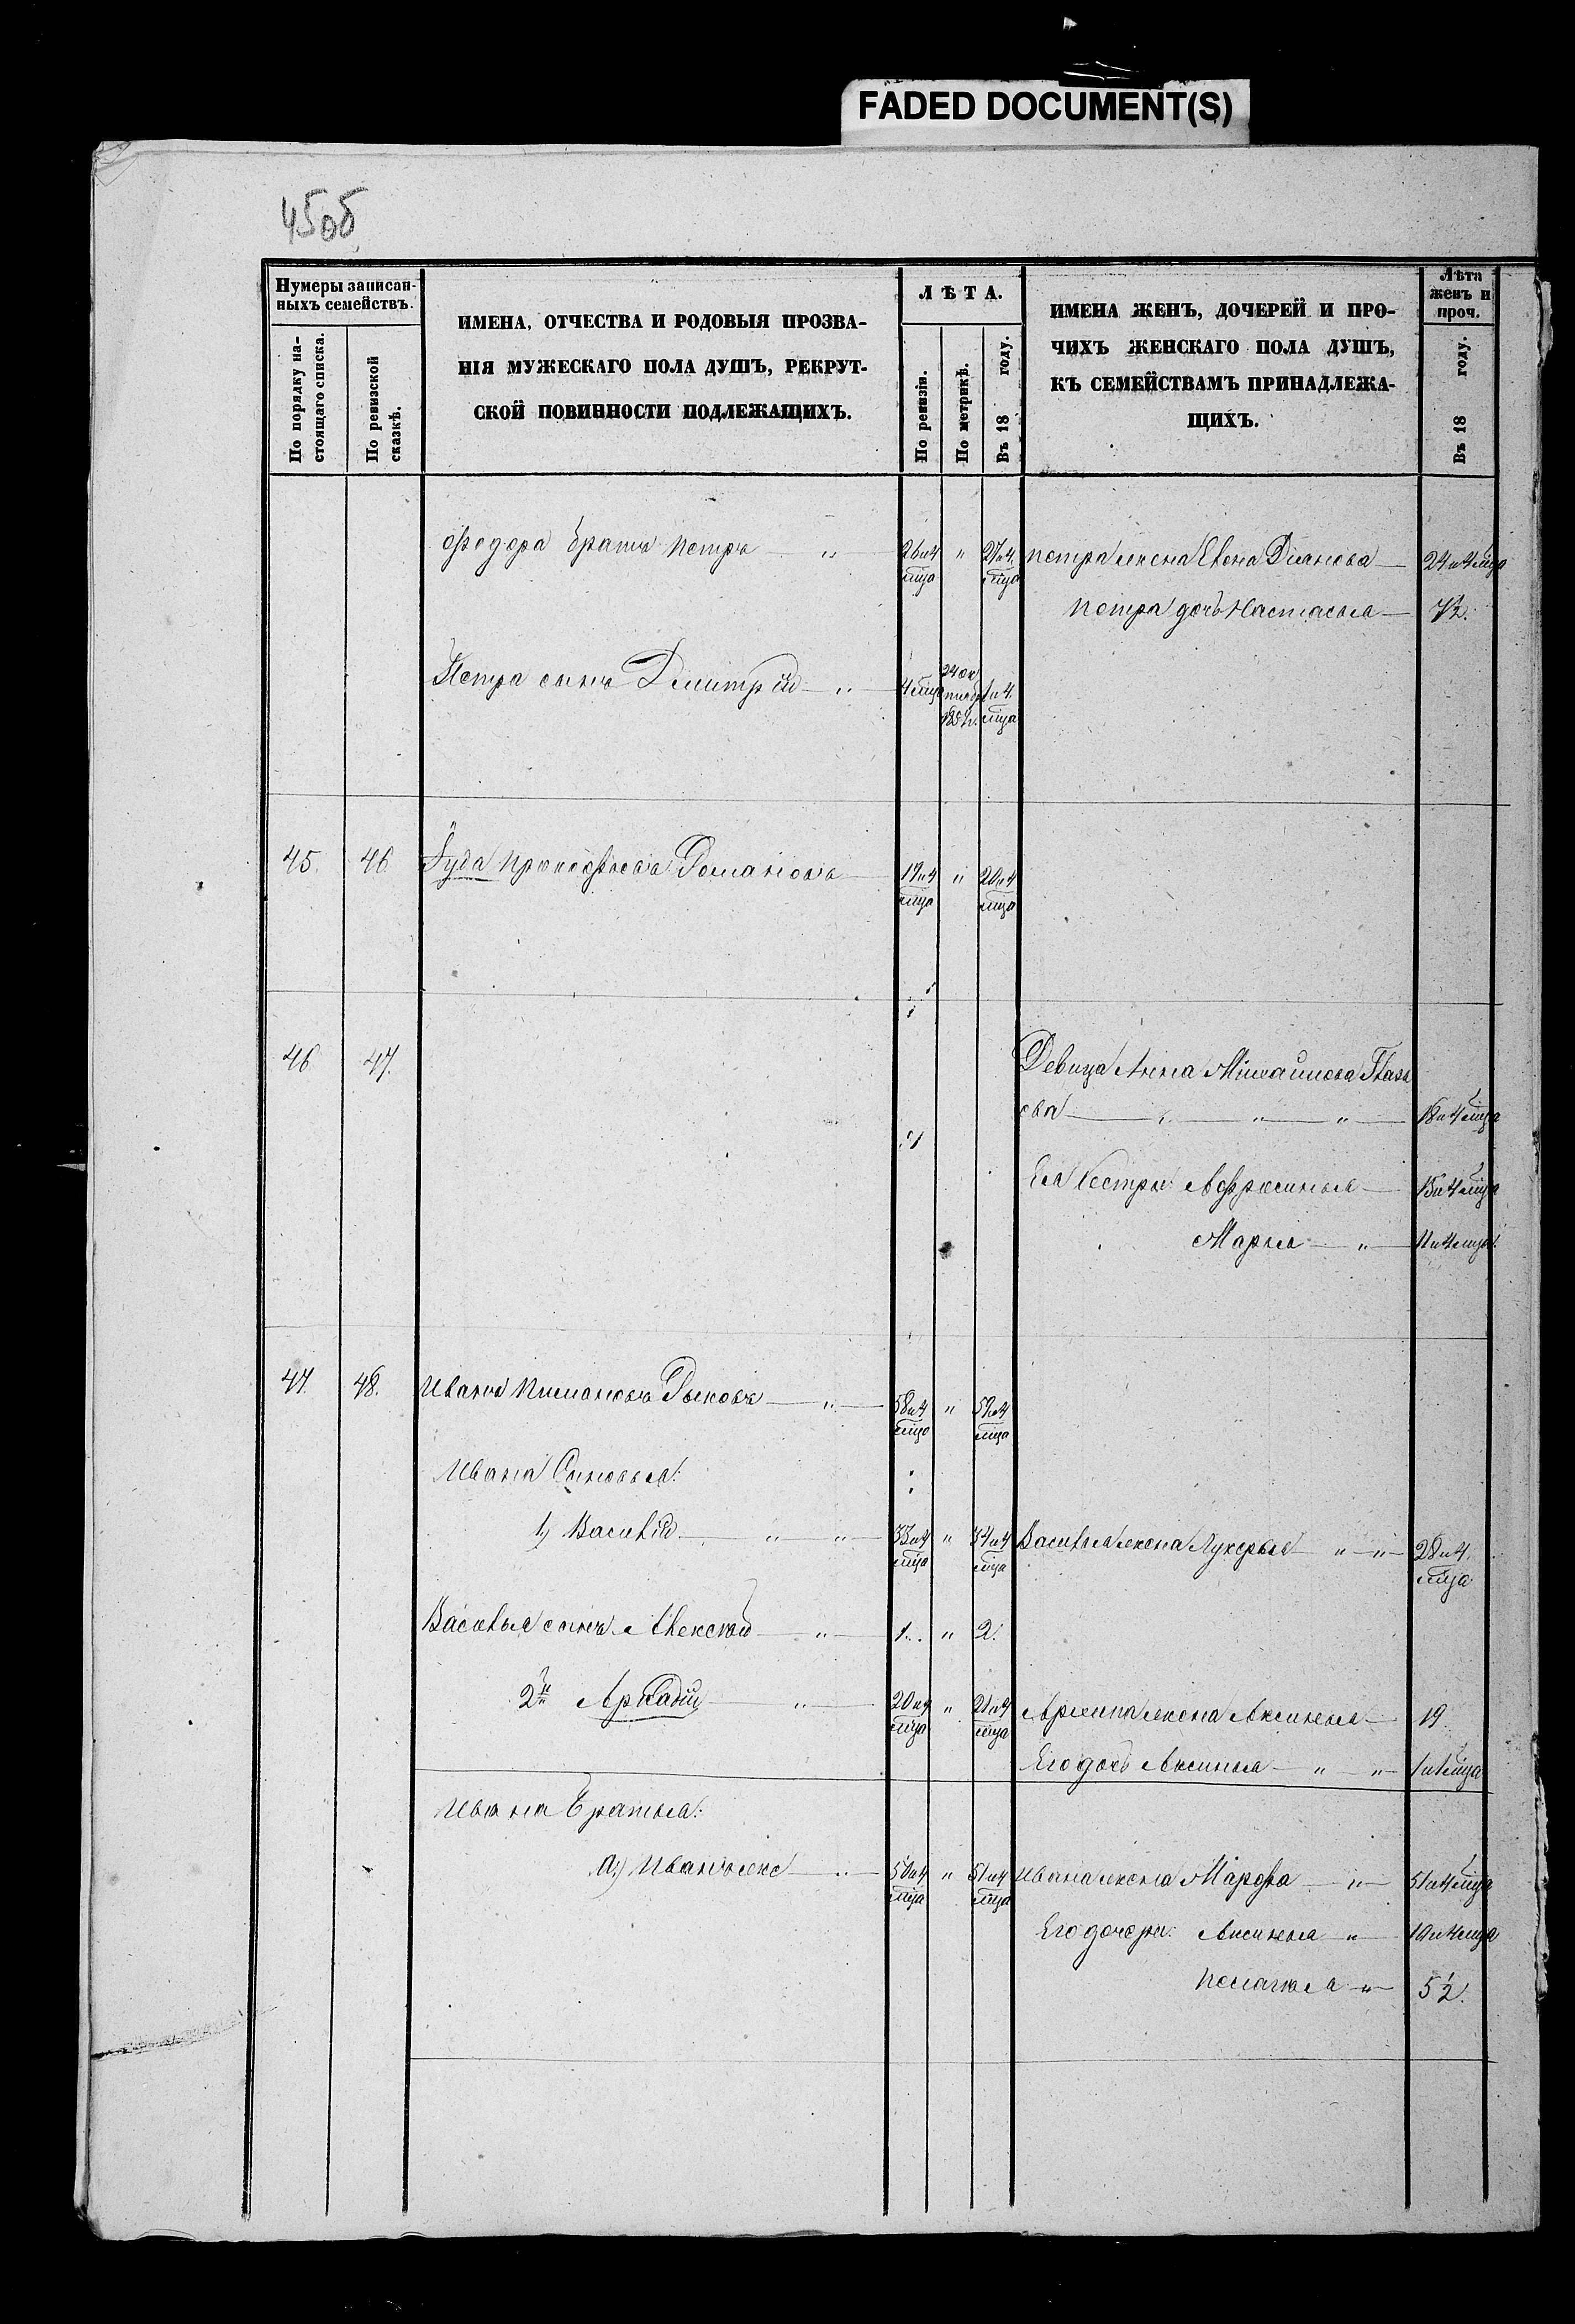 FADED DOCUMENT(S)
45об
Нумеры записан-
ныхъ семействъ.
По порядку на-
стоящаго списка.
По ревизской
сказкѣ.
ИМЕНА, ОТЧЕСТВА И РОДОВЫЯ ПРОЗВА-
НІЯ МУЖЕСКАГО ПОЛА ДУШЪ, РЕКРУТ-
СКОЙ ПОВИННОСТИ ПОДЛЕЖАЩИХЪ.
ЛѢТА.
По ревизіи.
По метрикѣ.
Въ 18 году.
ИМЕНА ЖЕНЪ, ДОЧЕРЕЙ И ПРО-
ЧИХЪ ЖЕНСКАГО ПОЛА ДУШЪ,
КЪ СЕМЕЙСТВАМЪ ПРИНАДЛЕЖА-
ЩИХЪ.
Лѣта
женъ и
проч.
Въ 18 году.
Федора братъ Петръ " 26 и 4 мца " 27 и 4 мца Петра жена Елена 24 и 4 мца
Петра дочь Настасья 7½.
Петра сынъ Дмитрій " 4 мца 24 ок 1 и 4 мца
45. 46. Іуда Романовъ 19 и 4 мца " 20 и 4 мца
46 47. Девица Анна Михайлова Глаз
ова " " " 18 и 4 мца
Ея Сестры: Афросинья 15 и 4 мца
Марья " 11 и 4 мца.
47. 48. Иванъ Рыковъ " 58 и 4 мца " 59 и 4 мца
Ивана Сыновья:
1, Василій " " 33 и 4 мца " 34 и 4 мца Василья жена Лукерья " " 28 и 4 мца
Василья сынъ Алексей " 1. " 2.
2й Аркадій " 20 и 4 мца " 21 и 4 мца жена Аксинья 19
Его дочь Аксинья " " 1 и 1 мца
Ивана братья:
а,) Иванъ же " 50 и 4 мца " 51 и 4 мца Ивана жена Марфа " 51 и 4 мца
Его дочери: Аксинья " 10 и 4 мца
Пелагея " 5½.